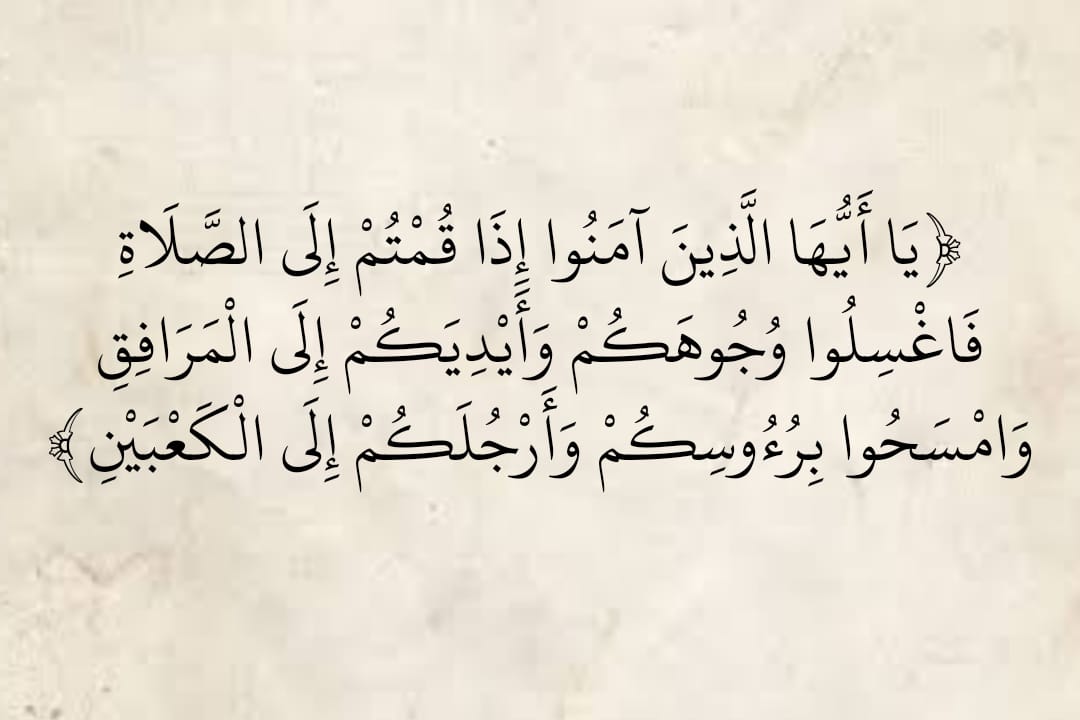 ﴿يَا أَيُّهَا الَّذِينَ آمَنُوا إِذَا قُمْتُمْ إِلَى الصَّلَاةِ
فَاغْسِلُوا وُجُوهَكُمْ وَأَيْدِيَكُمْ إِلَى الْمَرَافِقِ
وَامْسَحُوا بِرُءُوسِكُمْ وَأَرْجُلَكُمْ إِلَى الْكَعْبَيْنِ﴾